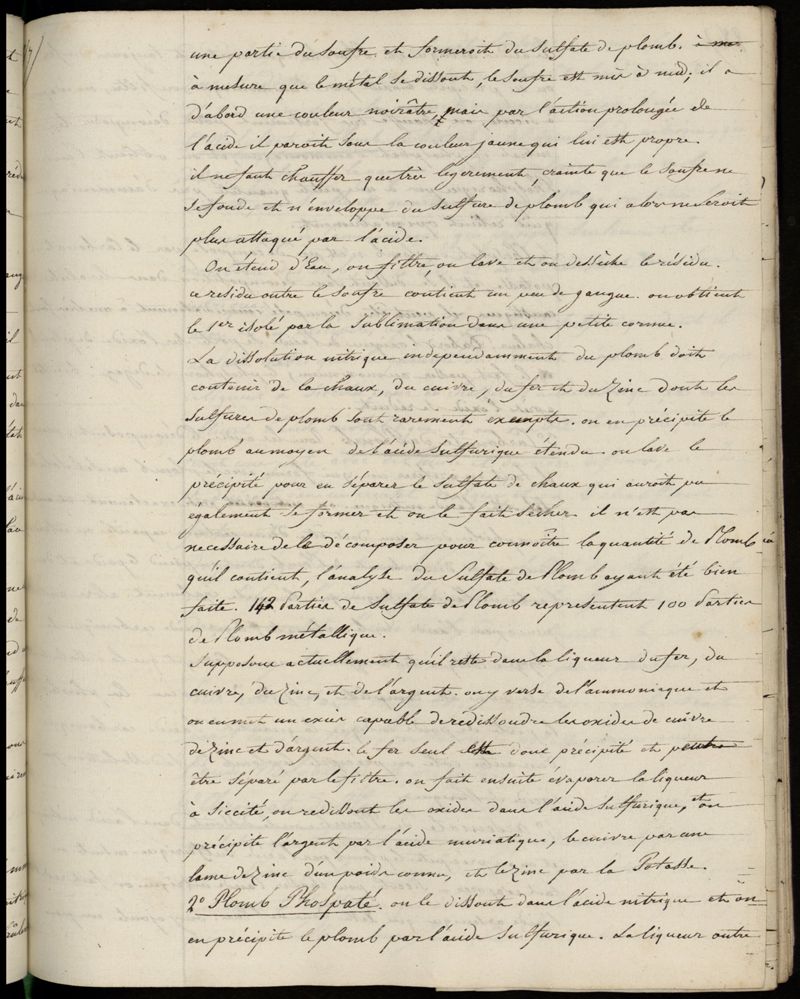 une partie du soufre et formeroit du sulfate de plomb. à me
à mesure que le métal se dissout, le soufre est mis à nud; il a
d'abord une couleur noirâtre, mais par l'action prolongée de
l'acide il paroit sous la couleur jaune qui lui est propre.
il ne faut chauffer que très légerement, crainte que le soufre ne
se fonde et n'enveloppe du sulfure de plomb qui alors ne seroit
plus attaqué par l'acide.
On étend d'Eau, on filtre, on lave et on dessèche le résidu.
ce residu outre le soufre contient un peu de gangue. on obtient
le 1er isolé par la sublimation dans une petite cornue.
La dissolution nitrique independamment du plomb doit
contenir de la chaux, du cuivre, du fer et du Zinc dont les
sulfures de plomb sont rarement exempts. on en précipite le
plomb au moyen de l'acide sulfurique étendu. on lave le
précipité pour en séparer le sulfate de chaux qui auroit pu
également se former et on le fait sécher il n'est pas
necessaire de le décomposer pour connoître la quantité de Plomb
qu'il contient, l'analyse du Sulfate de Plomb ayant été bien
faite. 142 Parties de sulfate de Plomb representent 100 Parties
de Plomb métallique.
supposons actuellement qu'il reste dans la liqueur du fer, du
cuivre, du Zinc, et de l'argent. on y verse de l'ammoniaque et
on en met un excès capable de redissoudre les oxides de cuivre
de Zinc et d'argent. le fer seul est donc précipité et peut
être séparé par le filtre. on fait ensuite évaporer la liqueur
à siccité, on redissout les oxides dans l'acide sulfurique, et on
précipite l'argent par l'acide muriatique, le cuivre par une
lame de Zinc d'un poids connu, et le Zinc par la Potasse.
2° Plomb Phosphaté. on le dissout dans l'acide nitrique et on
en précipite le plomb par l'acide sulfurique. La liqueur outre